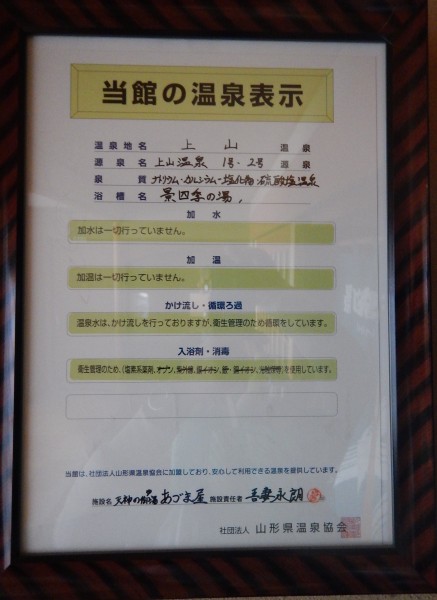 当館の温泉表示
温泉地名 上山 温泉
源泉名 上山温泉 1号・2号 温泉
泉質 ナトリウム・カルシウム-塩化物 硫酸塩温泉
浴槽名 景四季の湯
加水
加水は一切行っていません。
加温
加温は一切行っていません。
かけ流し・循環ろ過
温泉水は、かけ流しを行っておりますが、衛生管理のため循環をしています。
入浴剤・消毒
衛生管理のため、(塩素系薬剤、オゾン、紫外線、銀イオン、銀・銅イオン、光触媒等)を使用しています。
当館は、社団法人山形県温泉協会に加盟しており、安心して利用できる温泉を提供しています。
施設名 天神の御湯 あづま屋 施設責任者 吾妻永朗
社団法人 山形県温泉協会